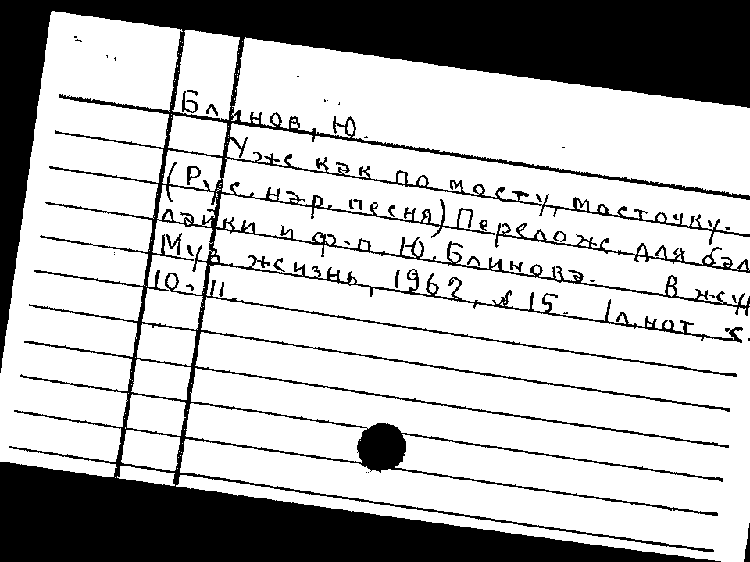 Блинов, Ю.
Уже как по мосту, мосточку.
(Рус. нар. песня) Переложе. для бал
лайки и ф-п. Ю. Блинова. В жур
Муз. жизнь, 1962, № 15. 1 л. нот, с.
10-11.